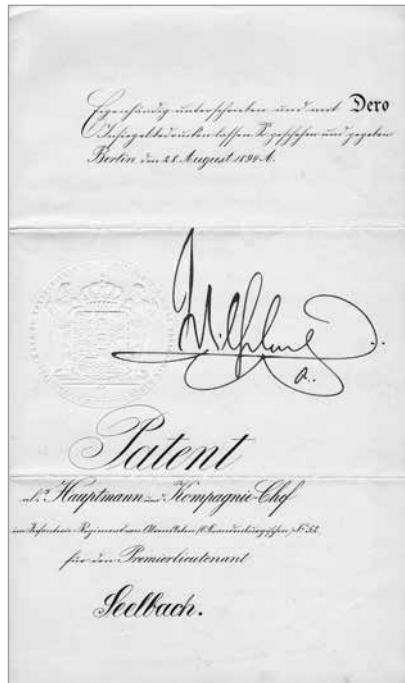 Eigenhändig unterschrieben und mit Dero
Insiegel bedrucken lassen. So geschehen und gegeben
Berlin, den 28. August 1894.
Wilhelm
R.
Patent
als Hauptmann und Kompagnie-Chef
im Infanterie-Regiment von Alvensleben (6. Brandenburgischen) Nr. 52
für den Premierlieutenant
Seelbach.